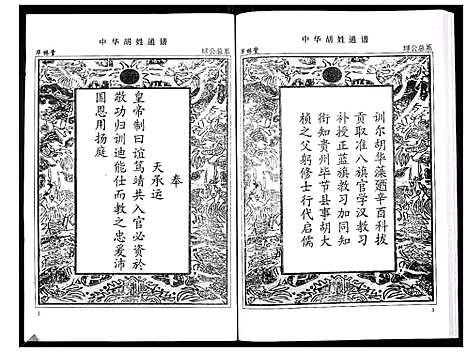 中华胡姓通谱
奉
天承运
皇帝制曰谊笃靖共入官必资於
敬功归训迪能仕而教之忠爱沛
国恩用扬庭
1
中华胡姓通谱
训尔胡华藻廼辛酉科拔
贡取准八旗官学汉教习
补授正蓝旗教习加同知
衔知贵州毕节县事胡大
桢之父躬修士行代启儒
3